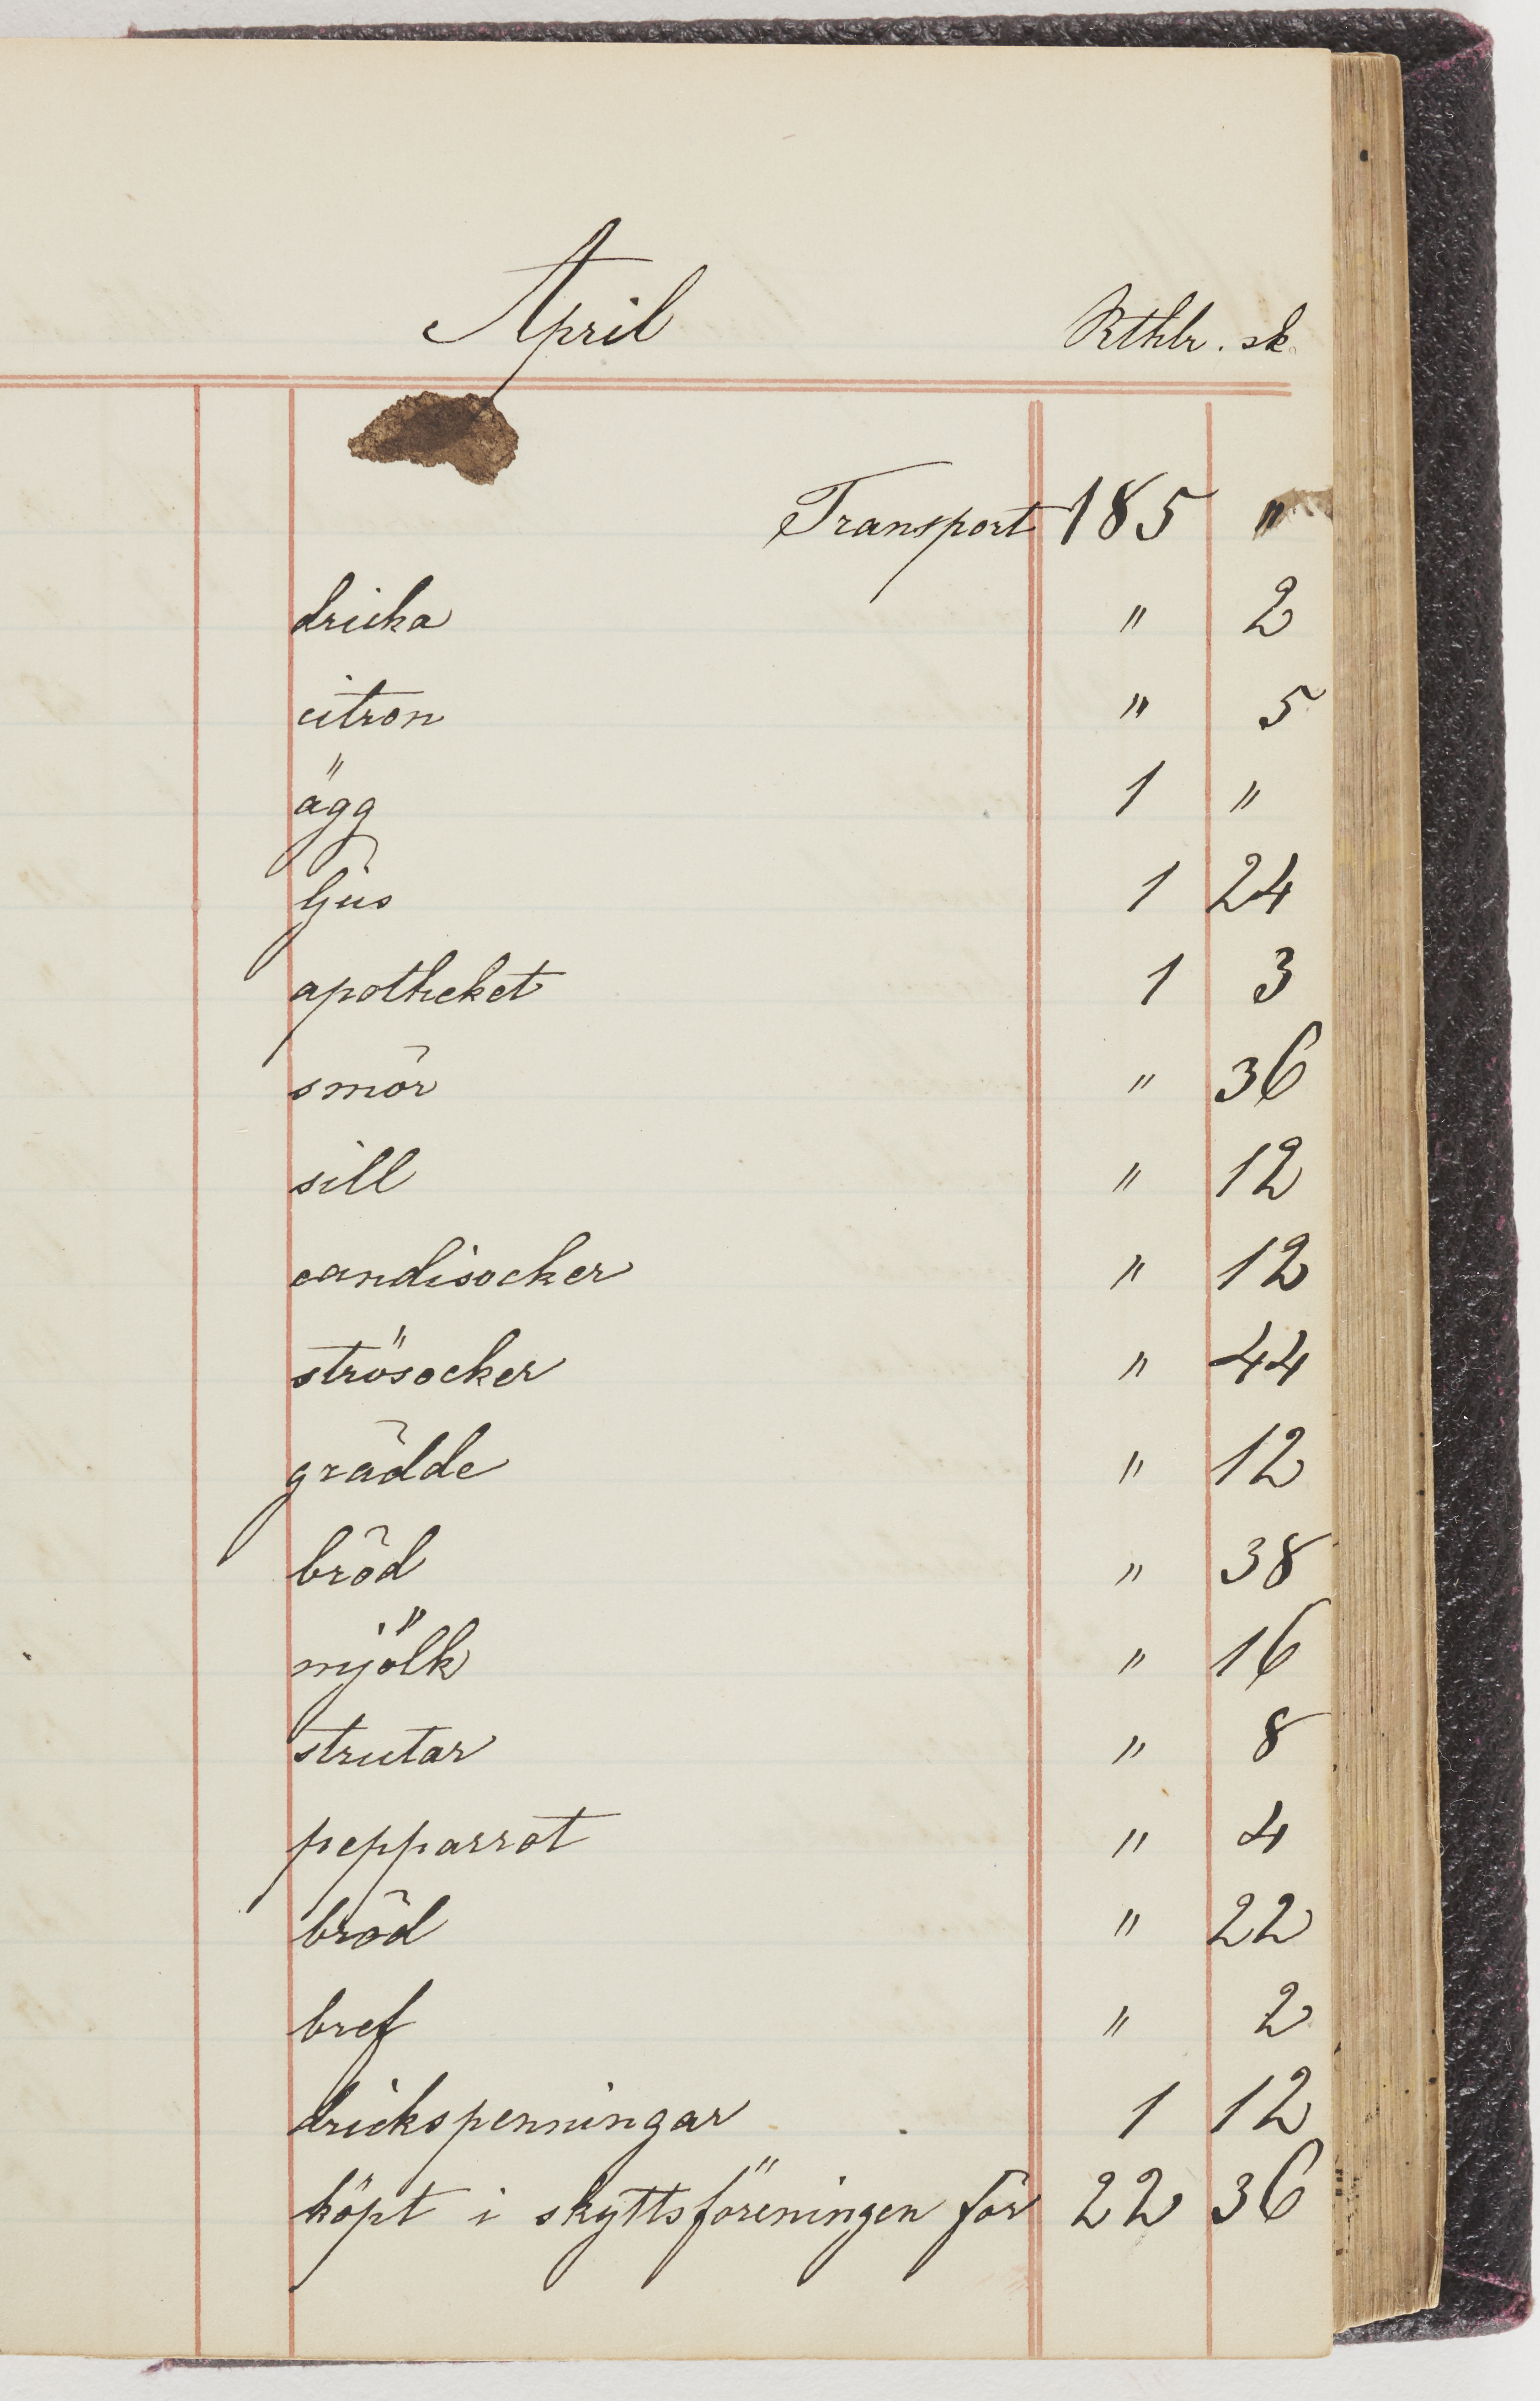 April Rthlr. sk.
Transport 185 "
dricka " 2
citron " 5
ägg 1 "
ljus 1 24
apotheket 1 3
smör " 36
sill " 12
candisocker " 12
strösocker " 44
grädde " 12
bröd " 38
mjölk " 16
strutar " 8
pepparrot " 4
bröd " 22
bref " 2
drickspenningar 1 12
köpt i skyttsföreningen för 22 36